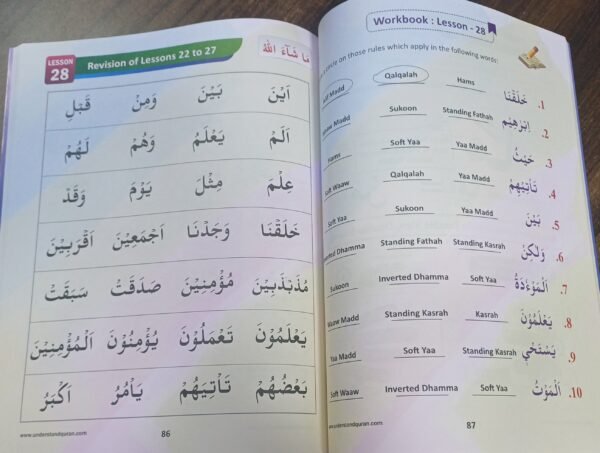 LESSON 28
Revision of Lessons 22 to 27
مَا شَآءَ اللّٰهُ
اَيْنَ بَيْنَ وَمِنْ قَبْلِ
اَلَمْ يَعْلَمُ وَهُمْ لَهُمْ
عِلْمَ مِثْلَ يَوْمَ وَقَدْ
خَلَقْنَا وَجَدْنَا اَجْمَعِيْنَ اَقْرَبِيْنَ
مُذَبْذَبِيْنَ مُؤْمِنِيْنَ صَدَقَتْ سَبَقَتْ
يَعْلَمُوْنَ تَعْمَلُوْنَ يُؤْمِنُوْنَ اَلْمُؤْمِنِيْنَ
بَعْضُهُمْ تَأْتِيَهُمْ يَأْمُرُ اَكْبَرُ
www.understandquran.com 86
Workbook : Lesson - 28
circle on those rules which apply in the following words:
1. خَلَقْنَا Hams Qalqalah Madd
2. اِبْرٰهِيْم Standing Fathah Sukoon Madd
3. حَيْثُ Yaa Madd Soft Yaa Hams
4. تَأْتِيْهِمْ Yaa Madd Qalqalah Soft Waaw
5. بَيْنَ Yaa Madd Sukoon Soft Yaa
6. وَلٰكِنْ Standing Kasrah Standing Fathah Dhamma
7. اَلْمَوْءٗدَةُ Soft Yaa Inverted Dhamma Sukoon
8. يَعْلَمُوْنَ Kasrah Standing Kasrah Waaw Madd
9. يَسْتَحْيٖ Standing Kasrah Soft Yaa Yaa Madd
10. اَلْمَوْتُ Soft Yaa Inverted Dhamma Soft Waaw
www.understandquran.com 87